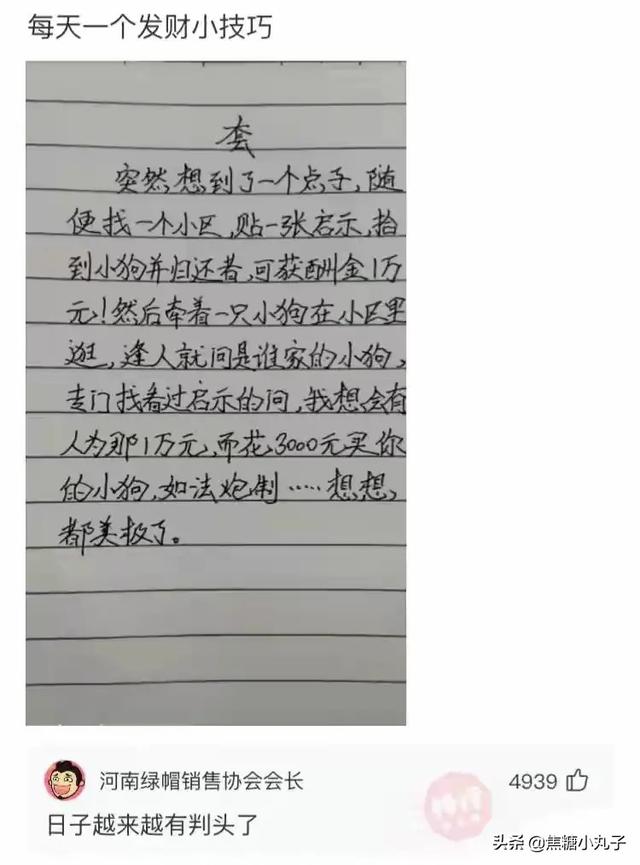 每天一个发财小技巧
套
突然想到了一个点子,随
便找一个小区,贴一张启示,拾
到小狗并归还者,可获酬金1万
元!然后牵着一只小狗在小区里
逛,逢人就问是谁家的小狗,
专门找看过启示的问,我想会有
人为那1万元,而花3000元买你
的小狗,如法炮制……想想,
都美极了。
河南绿帽销售协会会长
4939
日子越来越有判头了
头条 @焦糖小丸子